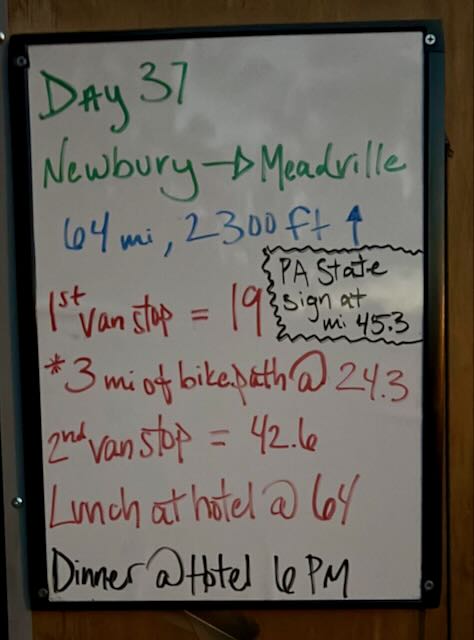 Day 37
Newbury → Meadville
64 mi, 2300 ft ↑
PA State
sign at
mi 45.3
1st van stop = 19
*3 mi of bike path @ 24.3
2nd van stop = 42.6
Lunch at hotel @ 64
Dinner @ Hotel 6 PM